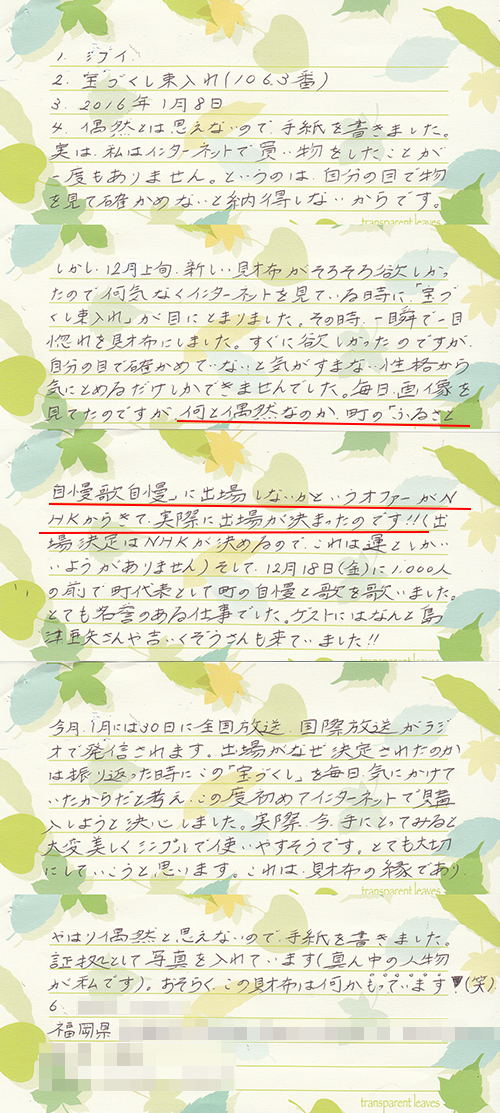 1. ジブイ
2. 宝づくし束入れ(106.3番)
3. 2016年1月8日
4. 偶然とは思えないので、手紙を書きました。
実は、私はインターネットで買い物をしたことが
一度もありません。というのは、自分の目で物
を見て確かめないと納得しないからです。
transparent leaves
しかし、12月上旬、新しい財布がそろそろ欲しかっ
たので何気なくインターネットを見ている時に、「宝づ
くし束入れ」が目にとまりました。その時、一瞬で一目
惚れを財布にしました。すぐに欲しかったのですが、
自分の目で確かめていないと気がすまない性格から
気にとめるだけしかできませんでした。毎日、画像を
見てたのですが、何と偶然なのか、町の「ふるさと
自慢歌自慢」に出場しないかというオファーがN
HKからきて、実際に出場が決まったのです!!(出
場決定はNHKが決めるので、これは運としかい
いようがありません)そして、12月18日(金)に1,000人
の前で町代表として町の自慢と歌を歌いました。
とても名誉のある仕事でした。ゲストにはなんと島
津亜矢さんや吉いくぞうさんも来ていました!!
今月、1月には30日に全国放送、国際放送がラジ
オで発信されます。出場がなぜ決定されたのか
は振り返った時にこの「宝づくし」を毎日、気にかけて
いたからだと考え、この度初めてインターネットで購
入しようと決心しました。実際、今、手にとってみると
大変美しくシンプルで使いやすそうです。とても大切
にしていこうと思います。これは、財布の縁であり、
transparent leaves
やはり偶然と思えないので、手紙を書きました。
証拠として写真を入れています(真ん中の人物
が私です)。おそらく、この財布は何かもっています!(笑)
6.
福岡県
transparent leaves